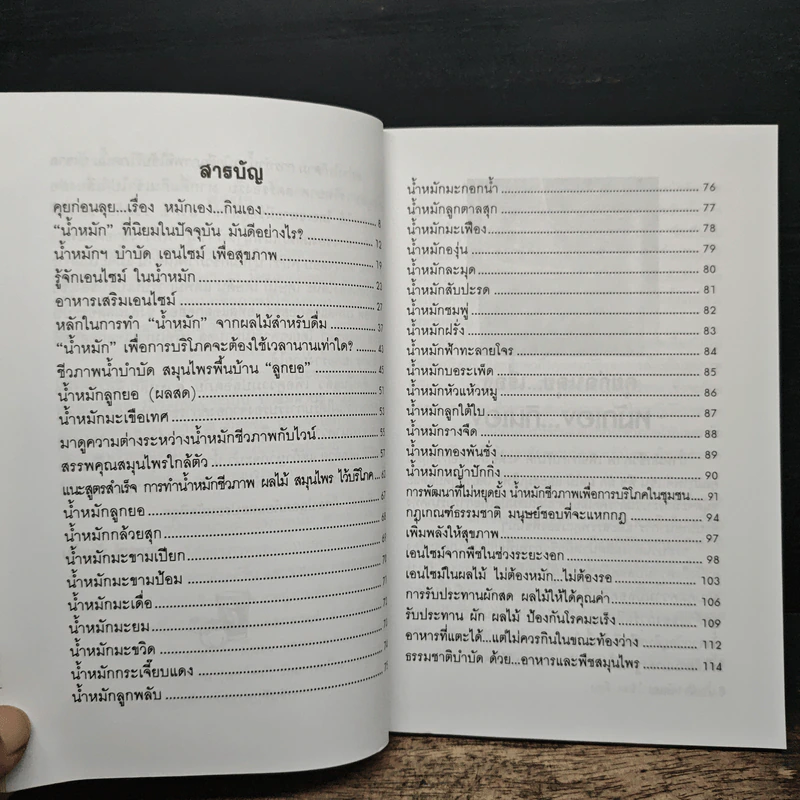 สารบัญ
คุยก่อนลุย...เรื่อง หมักเอง...กินเอง 8
“น้ำหมัก” ที่นิยมในปัจจุบัน มันดีอย่างไร? 12
น้ำหมักฯ บำบัด เอนไซม์ เพื่อสุขภาพ 19
รู้จักเอนไซม์ ในน้ำหมัก 23
อาหารเสริมเอนไซม์ 27
หลักในการทำ “น้ำหมัก” จากผลไม้สำหรับดื่ม 37
“น้ำหมัก” เพื่อการบริโภคจะต้องใช้เวลานานเท่าใด? 43
ชีวภาพน้ำบำบัด สมุนไพรพื้นบ้าน “ลูกยอ” 45
น้ำหมักลูกยอ (ผลสด) 51
น้ำหมักมะเขือเทศ
มาดูความต่างระหว่างน้ำหมักชีวภาพกับไวน์ 55
สรรพคุณสมุนไพรใกล้ตัว 57
แนะสูตรสำเร็จ การทำน้ำหมักชีวภาพ ผลไม้ สมุนไพร ไว้บริโภค
น้ำหมักลูกยอ 67
น้ำหมักกล้วยสุก
น้ำหมักมะขามเปียก
น้ำหมักมะขามป้อม
น้ำหมักมะเดื่อ
น้ำหมักมะยม
น้ำหมักมะขวิด
น้ำหมักกระเจี๊ยบแดง
น้ำหมักลูกพลับ
น้ำหมักมะกอกน้ำ 76
น้ำหมักลูกตาลสุก 77
น้ำหมักมะเฟือง 78
น้ำหมักองุ่น 79
น้ำหมักละมุด 80
น้ำหมักสับปะรด 81
น้ำหมักชมพู่ 82
น้ำหมักฝรั่ง 83
น้ำหมักฟ้าทะลายโจร 84
น้ำหมักบอระเพ็ด 85
น้ำหมักหัวแห้วหมู 86
น้ำหมักลูกใต้ใบ 87
น้ำหมักรางจืด 88
น้ำหมักทองพันชั่ง 89
น้ำหมักหญ้าปักกิ่ง 90
การพัฒนาที่ไม่หยุดยั้ง น้ำหมักชีวภาพเพื่อการบริโภคในชุมชน 91
กฎเกณฑ์ธรรมชาติ มนุษย์ชอบที่จะแหกกฎ 94
เพิ่มพลังให้สุขภาพ 97
เอนไซม์จากพืชในช่วงระยะงอก 98
เอนไซม์ในผลไม้ ไม่ต้องหมัก...ไม่ต้องรอ 103
การรับประทานผักสด ผลไม้ให้ได้คุณค่า 106
รับประทาน ผัก ผลไม้ ป้องกันโรคมะเร็ง 109
อาหารที่แตะได้...แต่ไม่ควรกินในขณะท้องว่าง 112
ธรรมชาติบำบัด ด้วย...อาหารและพืชสมุนไพร 114